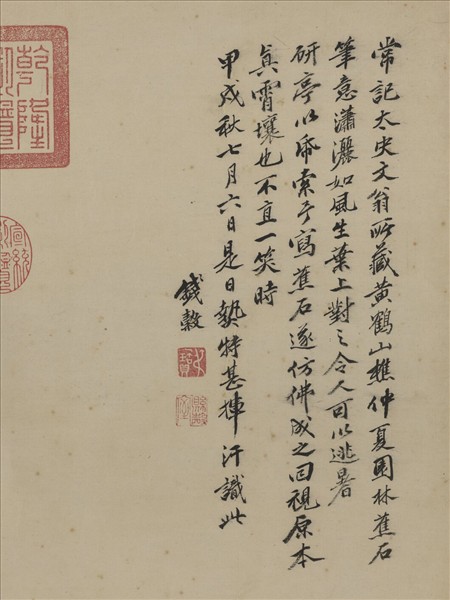 常記太史文翁所藏黃鶴山樵仲夏園林蕉石
筆意瀟灑如風生葉上對之令人可以逃暑
研亭以帋索予寫蕉石遂仿佛成之回視原本
真霄壤也不直一笑時
甲戌秋七月六日是日熱特甚揮汗識此
錢穀
叔寶
乾隆